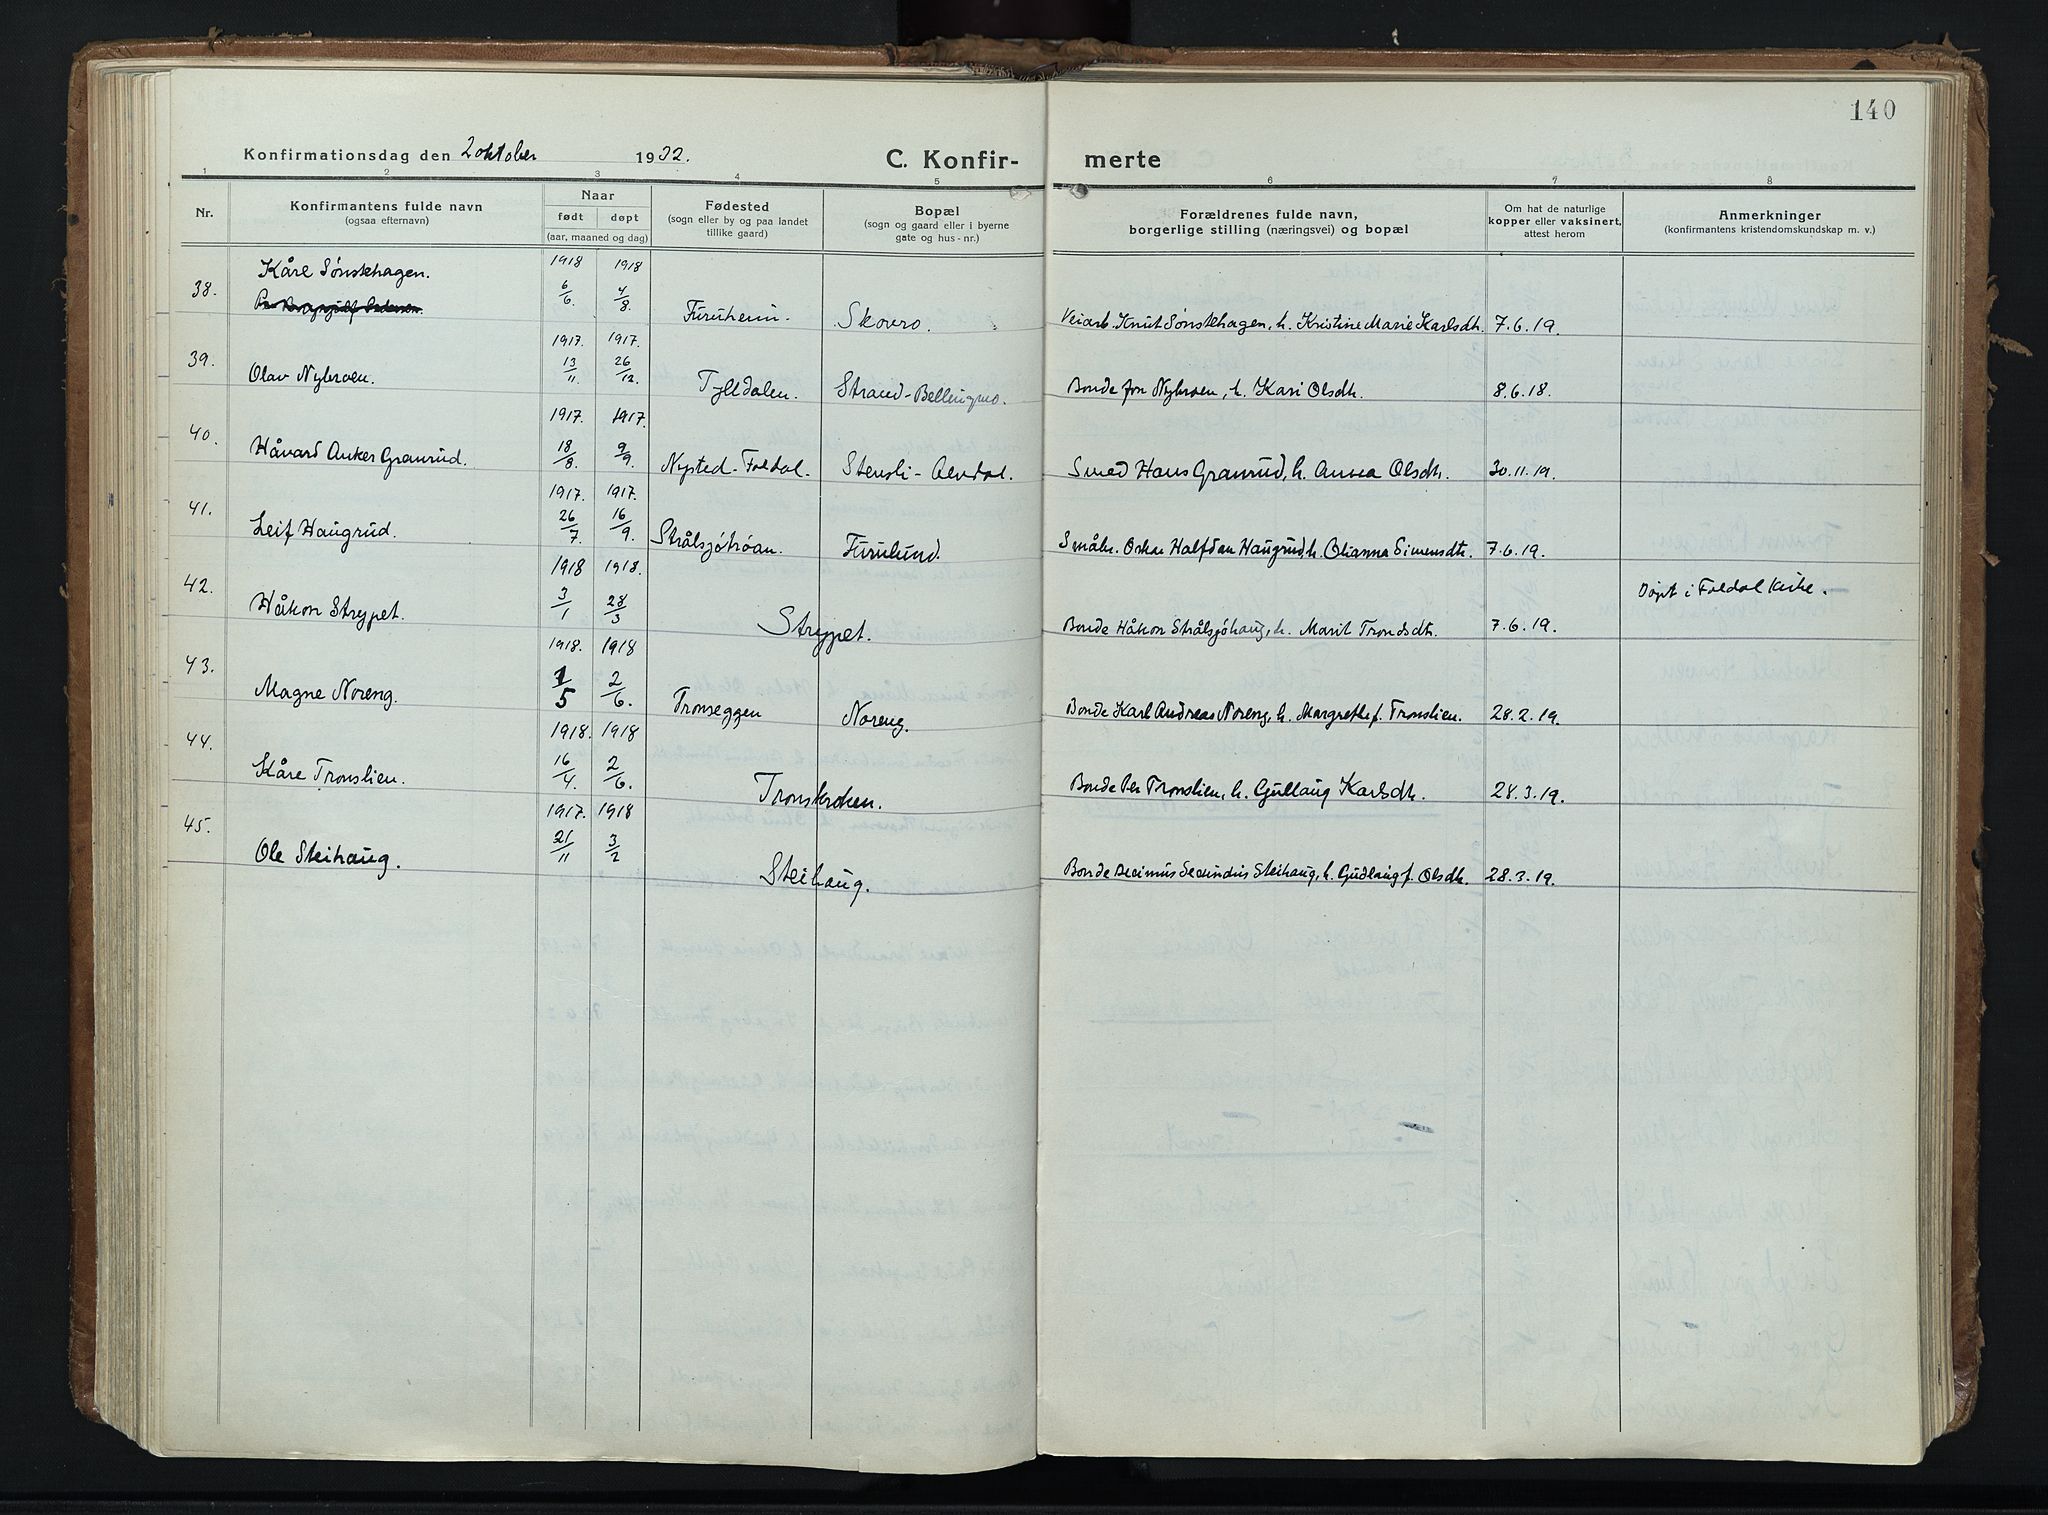 140
Konfirmationsdag den 2 oktober 1932.
C. Konfir- merte
1 2 3 4 5 6 7 8
Nr.
Konfirmantens fulde navn
(ogsaa efternavn)
Naar
født døpt
(aar, maaned og dag)
Fødested
(sogn eller by og paa landet
tillike gaard)
Bopæl
(sogn og gaard eller i byerne
gate og hus-nr.)
Forældrenes fulde navn,
borgerlige stilling (næringsvei) og bopæl
Om hat de naturlige
kopper eller vaksinert,
attest herom
Anmerkninger
(konfirmantens kristendomskundskap m. v.)
38. Kåre Sønstehagen. 1918 6/6. 1918 4/8. Furuheim. Skovro. Veiarb. Knut Sønstehagen, h. Kristine Marie Karlsdtr. 7.6.19.
39. Olav Nybroen. 1917. 13/11. 1917. 26/12. Tylldalen. Strand-Bellingmo. Bonde Jon Nybroen, h. Kari Olsdtr. 8.6.18.
40. Håvard Anker Granrud. 1917. 18/8. 1917. 9/9. Nysted-Foldal. Stensli-Alvdal. Smed Hans Granrud, h. Anna Olsdtr. 30.11.19.
41. Leif Haugrud. 1917. 26/7. 1917. 16/9. Strålsjøhøan. Furulund. Småbr. Oskar Halfdan Haugrud, h. Olianna Simensdtr. 7.6.19.
42. Håkon Strypet. 1918 3/1 1918. 28/3 Strypet. Bonde Håkon Strålsjøhaug, h. Marit Trondsdtr. 7.6.19. Døpt i Foldal Kirke.
43. Magne Noreng. 1918. 1/5 1918 2/6. Tronseggen Noreng. Bonde Karl Andreas Noreng, h. Margrethe f. Tronslien. 28.2.19.
44. Kåre Tronslien. 1918. 16/4. 1918 2/6. Tronskroken. Bonde Per Tronslien, h. Gullaug Karlsdtr. 28.3.19.
45. Ole Steihaug. 1917. 21/11 1918 3/2 Steihaug. Bonde Decimus Secundus Steihaug, h. Gudlaug f. Olsdtr. 28.3.19.